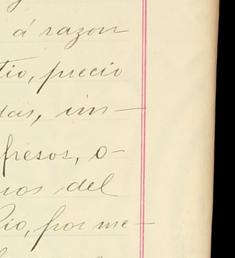 á razon
tio, precio
das, im-
fresos, o-
nos del
Rio, por me-